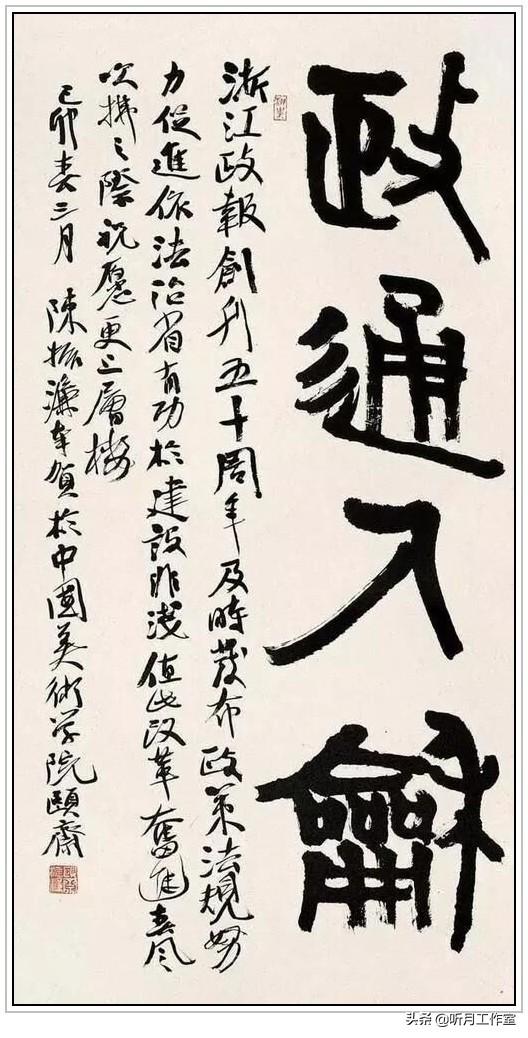 政通人龢
浙江政報創刊五十周年及時發布政策法規努
力促進依法治省有功於建設非淺值此改革奮進春风
吹拂之際祝愿更上層樓
己卯春三月 陳振濂奉賀於中國美術学院頤齋
头条 @听月工作室